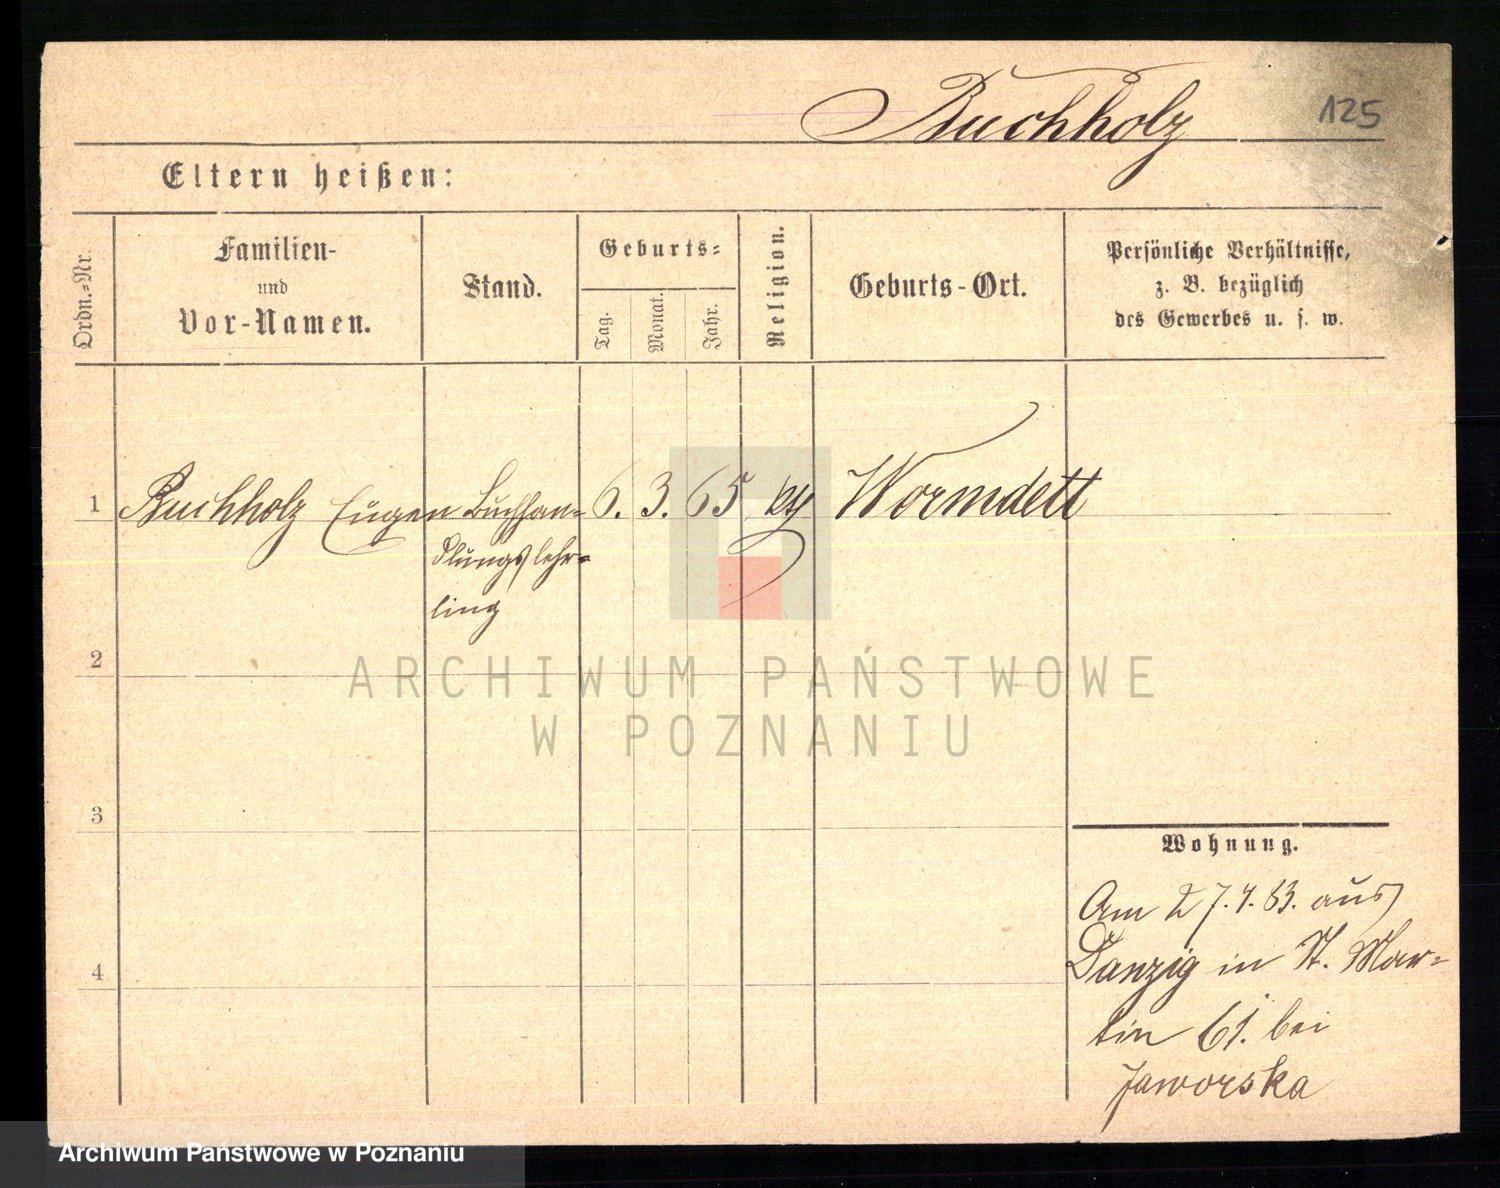 Buchholz
125
Eltern heißen:
Ordn.=Nr.
Familien-
und
Vor-Namen.
Stand.
Geburts=
Tag.
Monat.
Jahr.
Religion.
Geburts-Ort.
Persönliche Verhältnisse,
z. B. bezüglich
des Gewerbes u. s. w.
1
Buchholz Eugen
Buchhan=
dlungslehr=
ling
6. 3. 65
Wormdett
2
3
4
Wohnung.
Am 27.4.83. aus
Danzig in St. Mar=
tin 61. bei
Jaworska
ARCHIWUM PAŃSTWOWE
W POZNANIU
Archiwum Państwowe w Poznaniu